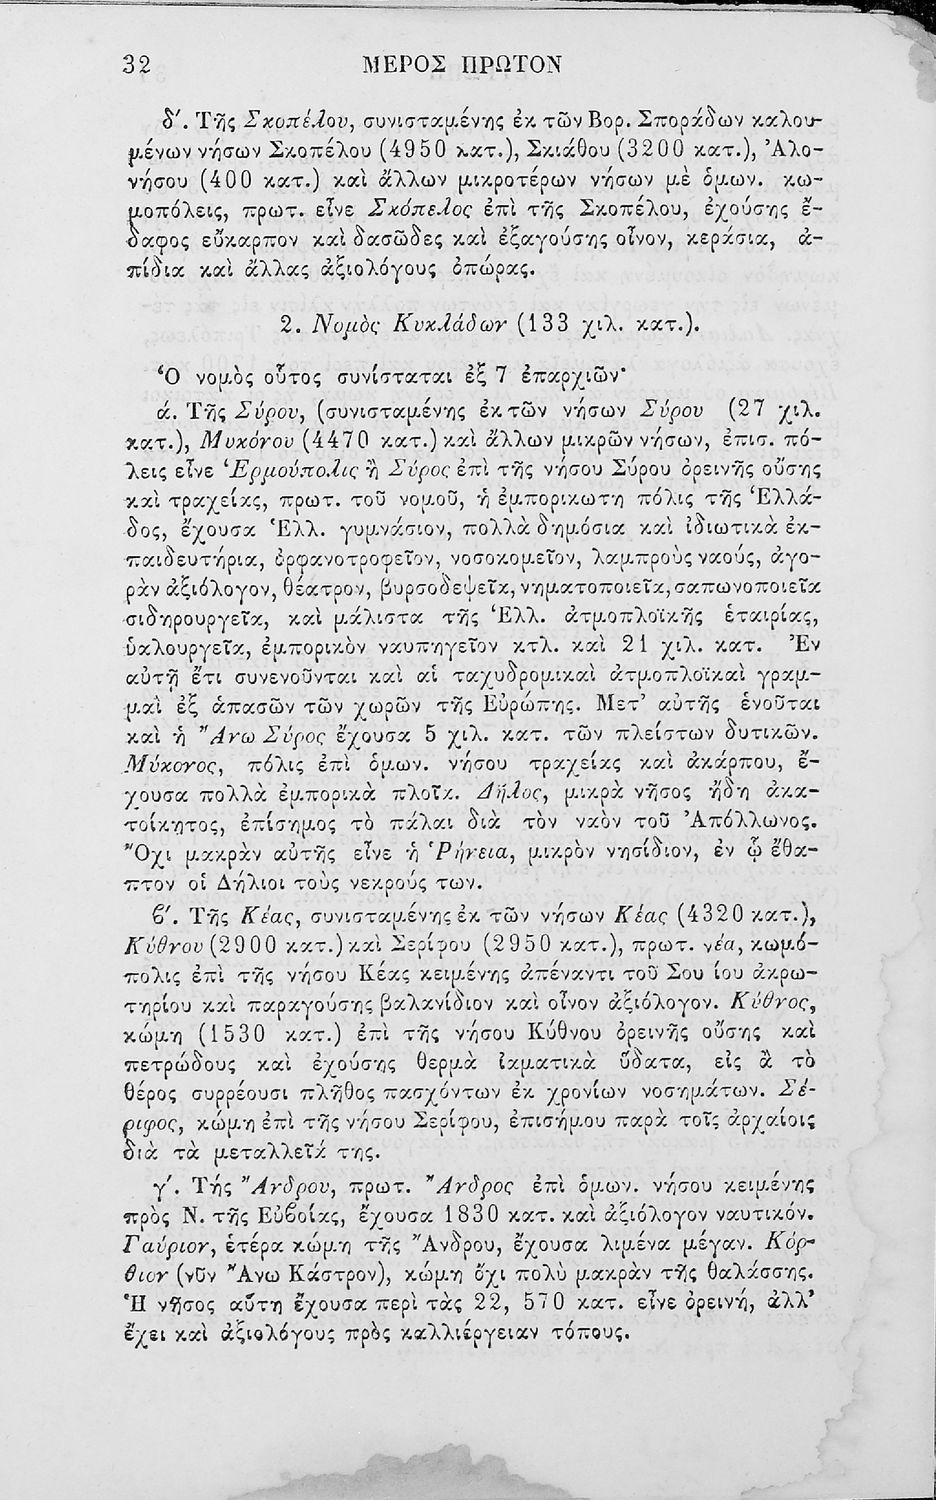 32 ΜΕΡΟΣ ΠΡΩΤΟΝ
δ′. Τῆς Σκοπέλου, συνισταμένης ἐκ τῶν Βορ. Σποράδων καλου-
μένων νήσων Σκοπέλου (4950 κατ.), Σκιάθου (3200 κατ.), Ἀλο-
νήσου (400 κατ.) καὶ ἄλλων μικροτέρων νήσων μὲ ὁμων. κω-
μοπόλεις, πρωτ. εἶνε Σκόπελος ἐπὶ τῆς Σκοπέλου, ἐχούσης ἔ-
δαφος εὔκαρπον καὶ δασῶδες καὶ ἐξαγούσης οἶνον, κεράσια, ἀ-
πίδια καὶ ἄλλας ἀξιολόγους ὀπώρας.
2. Νομὸς Κυκλάδων (133 χιλ. κατ.).
Ὁ νομὸς οὗτος συνίσταται ἐξ 7 ἐπαρχιῶν·
ά. Τῆς Σύρου, (συνισταμένης ἐκ τῶν νήσων Σύρου (27 χιλ.
κατ.), Μυκόνου (4470 κατ.) καὶ ἄλλων μικρῶν νήσων, ἐπισ. πό-
λεις εἶνε Ἑρμούπολις ἢ Σύρος ἐπὶ τῆς νήσου Σύρου ὀρεινῆς οὔσης
καὶ τραχείας, πρωτ. τοῦ νομοῦ, ἡ ἐμπορικωτη πόλις τῆς Ἑλλά-
δος, ἔχουσα Ἑλλ. γυμνάσιον, πολλὰ δημόσια καὶ ἰδιωτικὰ ἐκ-
παιδευτήρια, ὀρφανοτροφεῖον, νοσοκομεῖον, λαμπροὺς ναούς, ἀγο-
ρὰν ἀξιόλογον, θέατρον, βυρσοδεψεῖα, νηματοποιεῖα, σαπωνοποιεῖα
σιδηρουργεῖα, καὶ μάλιστα τῆς Ἑλλ. ἀτμοπλοϊκῆς ἑταιρίας,
ὑαλουργεῖα, ἐμπορικὸν ναυπηγεῖον κτλ. καὶ 21 χιλ. κατ. Ἐν
αὐτῇ ἔτι συνενοῦνται καὶ αἱ ταχυδρομικαὶ ἀτμοπλοϊκαὶ γραμ-
μαὶ ἐξ ἁπασῶν τῶν χωρῶν τῆς Εὐρώπης. Μετ’ αὐτῆς ἑνοῦται
καὶ ἡ Ἄνω Σύρος ἔχουσα 5 χιλ. κατ. τῶν πλείστων δυτικῶν.
Μύκονος, πόλις ἐπὶ ὁμων. νήσου τραχείας καὶ ἀκάρπου, ἔ-
χουσα πολλὰ ἐμπορικὰ πλοῖα. Δῆλος, μικρὰ νῆσος ἤδη ἀκα-
τοίκητος, ἐπίσημος τὸ πάλαι διὰ τὸν ναὸν τοῦ Ἀπόλλωνος.
Ὄχι μακρὰν αὐτῆς εἶνε ἡ Ῥήνεια, μικρὸν νησίδιον, ἐν ᾧ ἔθα-
πτον οἱ Δήλιοι τοὺς νεκρούς των.
ϐ′. Τῆς Κέας, συνισταμένης ἐκ τῶν νήσων Κέας (4320 κατ.),
Κύθνου (2900 κατ.) καὶ Σερίφου (2950 κατ.), πρωτ. νέα, κωμό-
πολις ἐπὶ τῆς νήσου Κέας κειμένης ἀπέναντι τοῦ Σου ίου ἀκρω-
τηρίου καὶ παραγούσης βαλανίδιον καὶ οἶνον ἀξιόλογον. Κύθνος,
κώμη (1530 κατ.) ἐπὶ τῆς νήσου Κύθνου ὀρεινῆς οὔσης καὶ
πετρώδους καὶ ἐχούσης θερμὰ ἰαματικὰ ὕδατα, εἰς ἃ τὸ
θέρος συρρέουσι πλῆθος πασχόντων ἐκ χρονίων νοσημάτων. Σέ-
ριφος, κώμη ἐπὶ τῆς νήσου Σερίφου, ἐπισήμου παρὰ τοῖς ἀρχαίοις
διὰ τὰ μεταλλεῖά της.
γ′. Τής Ἄνδρου, πρωτ. Ἄνδρος ἐπὶ ὁμων. νήσου κειμένης
πρὸς Ν. τῆς Εὐϐοίας, ἔχουσα 1830 κατ. καὶ ἀξιόλογον ναυτικόν.
Γαύριον, ἑτέρα κώμη τῆς Ἄνδρου, ἔχουσα λιμένα μέγαν. Κόρ-
θιον (νῦν Ἄνω Κάστρον), κώμη ὄχι πολὺ μακρὰν τῆς θαλάσσης.
Ἡ νῆσος αὕτη ἔχουσα περὶ τὰς 22, 570 κατ. εἶνε ὀρεινή, ἀλλ’
ἔχει καὶ ἀξιολόγους πρὸς καλλιέργειαν τόπους.